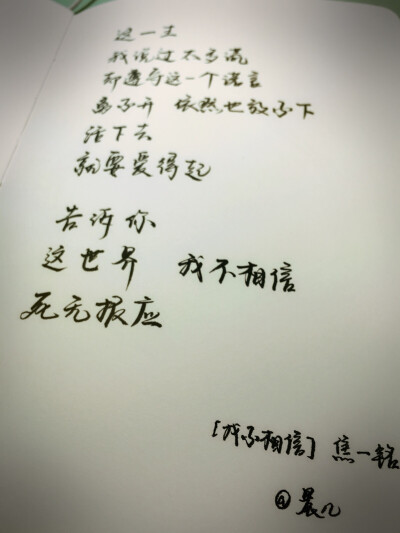 这一生
我说过太多谎
却遵守这一个诺言
离不开 依然也放不下
活下去
就要爱得起
告诉你
这世界 我不相信
死无报应
[我不相信] 焦一铭
@晨